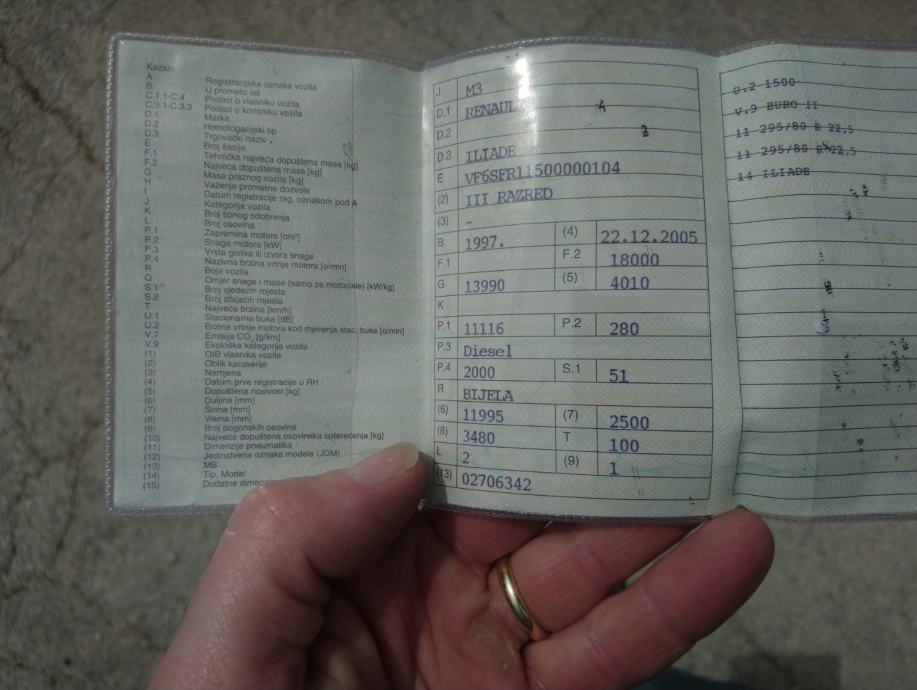 Kazalo
A Registracijska oznaka vozila
B U prometu od
C.1.1-C.4 Podaci o vlasniku vozila
C.3.1-C.3.3 Podaci o korisniku vozila
D.1 Marka
D.2 Homologacijski tip
D.3 Trgovački naziv
E Broj šasije
F.1 Tehnička najveća dopuštena masa [kg]
F.2 Najveća dopuštena masa [kg]
G Masa praznog vozila [kg]
H Važenje prometne dozvole
I Datum registracije reg. oznakom pod A
J Kategorija vozila
K Broj tipnog odobrenja
L Broj osovina
P.1 Zapremina motora [cm³]
P.2 Snaga motora [kW]
P.3 Vrsta goriva ili izvora snage
P.4 Nazivna brzina vrtnje motora [o/min]
R Boja vozila
Q Omjer snage i mase (samo za motocikle) [kW/kg]
S.1 Broj sjedećih mjesta
S.2 Broj stajaćih mjesta
T Najveća brzina [km/h]
U.1 Stacionarna buka [dB]
U.2 Brzina vrtnje motora kod mjerenja stac. buke [o/min]
V.7 Emisija CO₂ [g/km]
V.9 Ekološka kategorija vozila
(1) OIB vlasnika vozila
(2) Oblik karoserije
(3) Namjena
(4) Datum prve registracije u RH
(5) Dopuštena nosivost [kg]
(6) Duljina [mm]
(7) Širina [mm]
(8) Visina [mm]
(9) Broj pogonskih osovina
(10) Najveća dopuštena osovinska opterećenja [kg]
(11) Dimenzije pneumatika
(12) Jedinstvena oznaka modela (JOM)
(13) MB
(14) Tip, Model
(15) Dodatne
J M3
D.1 RENAULT
D.2
D.3 ILIADE
E VF6SFR11500000104
(2) III RAZRED
(3) -
B 1997. (4) 22.12.2005
F.1 F.2 18000
G 13990 (5) 4010
K
P.1 11116 P.2 280
P.3 Diesel
P.4 2000 S.1 51
R BIJELA
(6) 11995 (7) 2500
(8) 3480 T 100
L 2 (9) 1
(13) 02706342
U.2 1500
V.9 EURO II
11 295/80 R 22,5
11 295/80 R 22,5
14 ILIADE